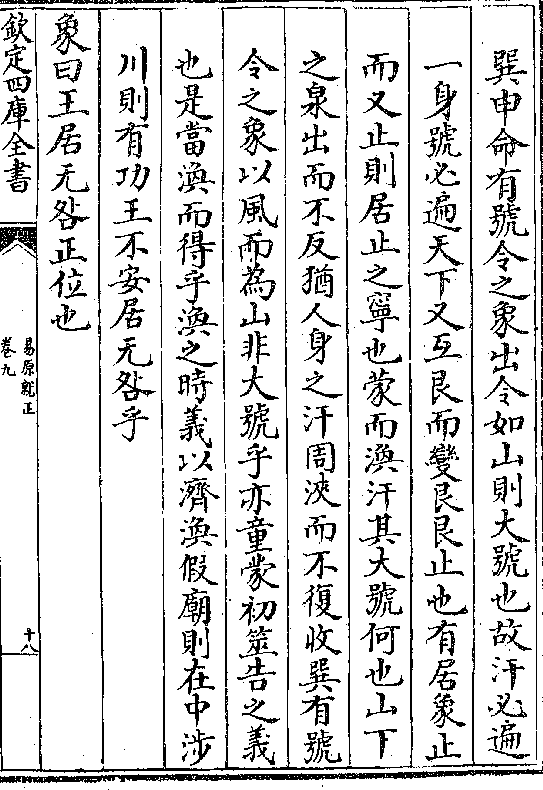 巽申命有號令之象出令如山則大號也故汗必遍
一身號必遍天下又互艮而變艮艮止也有居象止
而又止則居止之寧也蒙而渙汗其大號何也山下
之泉出而不反猶人身之汗周浹而不復收巽有號
令之象以風而為山非大號乎亦童蒙初筮告之義
也是當渙而得乎渙之時義以濟渙假廟則在中涉
川則有功王不安居无咎乎
象曰王居无咎正位也
欽定四庫全書
易原就正
卷九
十八